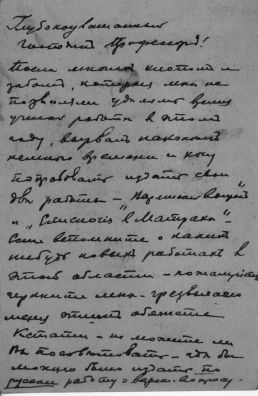 Глубокоуважаемый
господин Профессор!
После многих хлопот и
забот, которые мне не
позволяли уделять
ученой работы в этом
году, вырвал наконец
немного времени и хочу
попробовать издать свои
две работы –
и "Епископ в
Если вспомните о каких
нибудь новых работах в
этой области – пожалуйста
черкните мне – чрезвычайно
меня этим обяжете
Кстати – не можете ли
Вы посоветовать – где бы
можно было издать по
русски работу о вопросу.